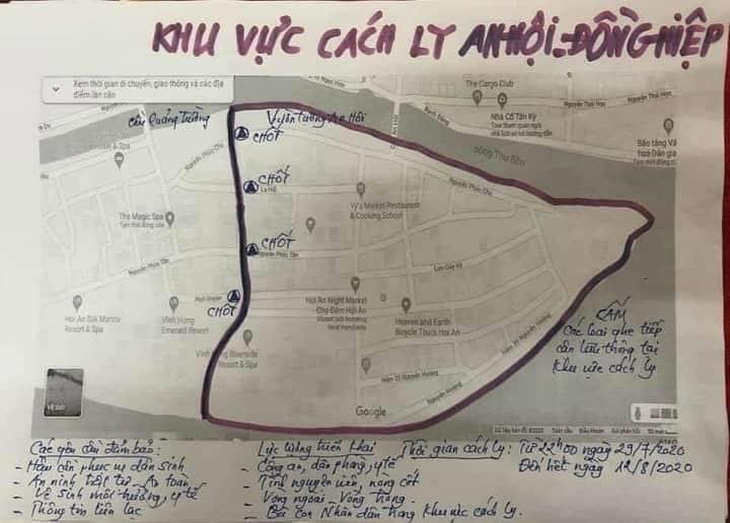 KHU VỰC CÁCH LY AN HỘI - ĐỒNG HIỆP
Xem thời gian di chuyển, giao thông và các địa
điểm lân cận
Cầu Quảng Trường
Vườn tượng An Hội
The Cargo Club
Nguyễn Thái Học
Nguyễn Thái Học
Nhà Cổ Tân Ký
Bạch Đằng
Bảo tàng Vă
hoá Dân gia
sông Thu Bồn
CHỐT
CHỐT
CHỐT
CHỐT
Nguyễn Phúc Chu
Nguyễn Phúc Chu
La Hối
Vy's Market Restaurant
& Cooking School
The Magic Spa
Nguyễn Phúc Tần
Nguyễn Phúc Tần
Hoi An Night Market
Chợ Đêm Hội An
Heaven and Earth
Bicycle Tours Hoi An
Hoi An Silk Marina
Resort & Spa
Vinh Hung
Emerald Resort
Vinh Hung Riverside
Resort & Spa
Nguyễn Hoàng
Google
CẤM
Các loại ghe tiếp
cận lưu thông tại
khu vực cách ly
Các yêu cầu đảm bảo:
- Hậu cần phục vụ dân sinh
- An ninh trật tự - An toàn
- Vệ sinh môi trường, y tế
- Thông tin liên lạc
Lực lượng triển khai
- Công an, dân phòng, y tế
- Tình nguyện viên, nòng cốt
- Vòng ngoài - Vòng trong.
- Bà con Nhân dân trong khu vực cách ly.
Thời gian cách ly: Từ 22h00 ngày 29/7/2020
Đến hết ngày 12/8/2020